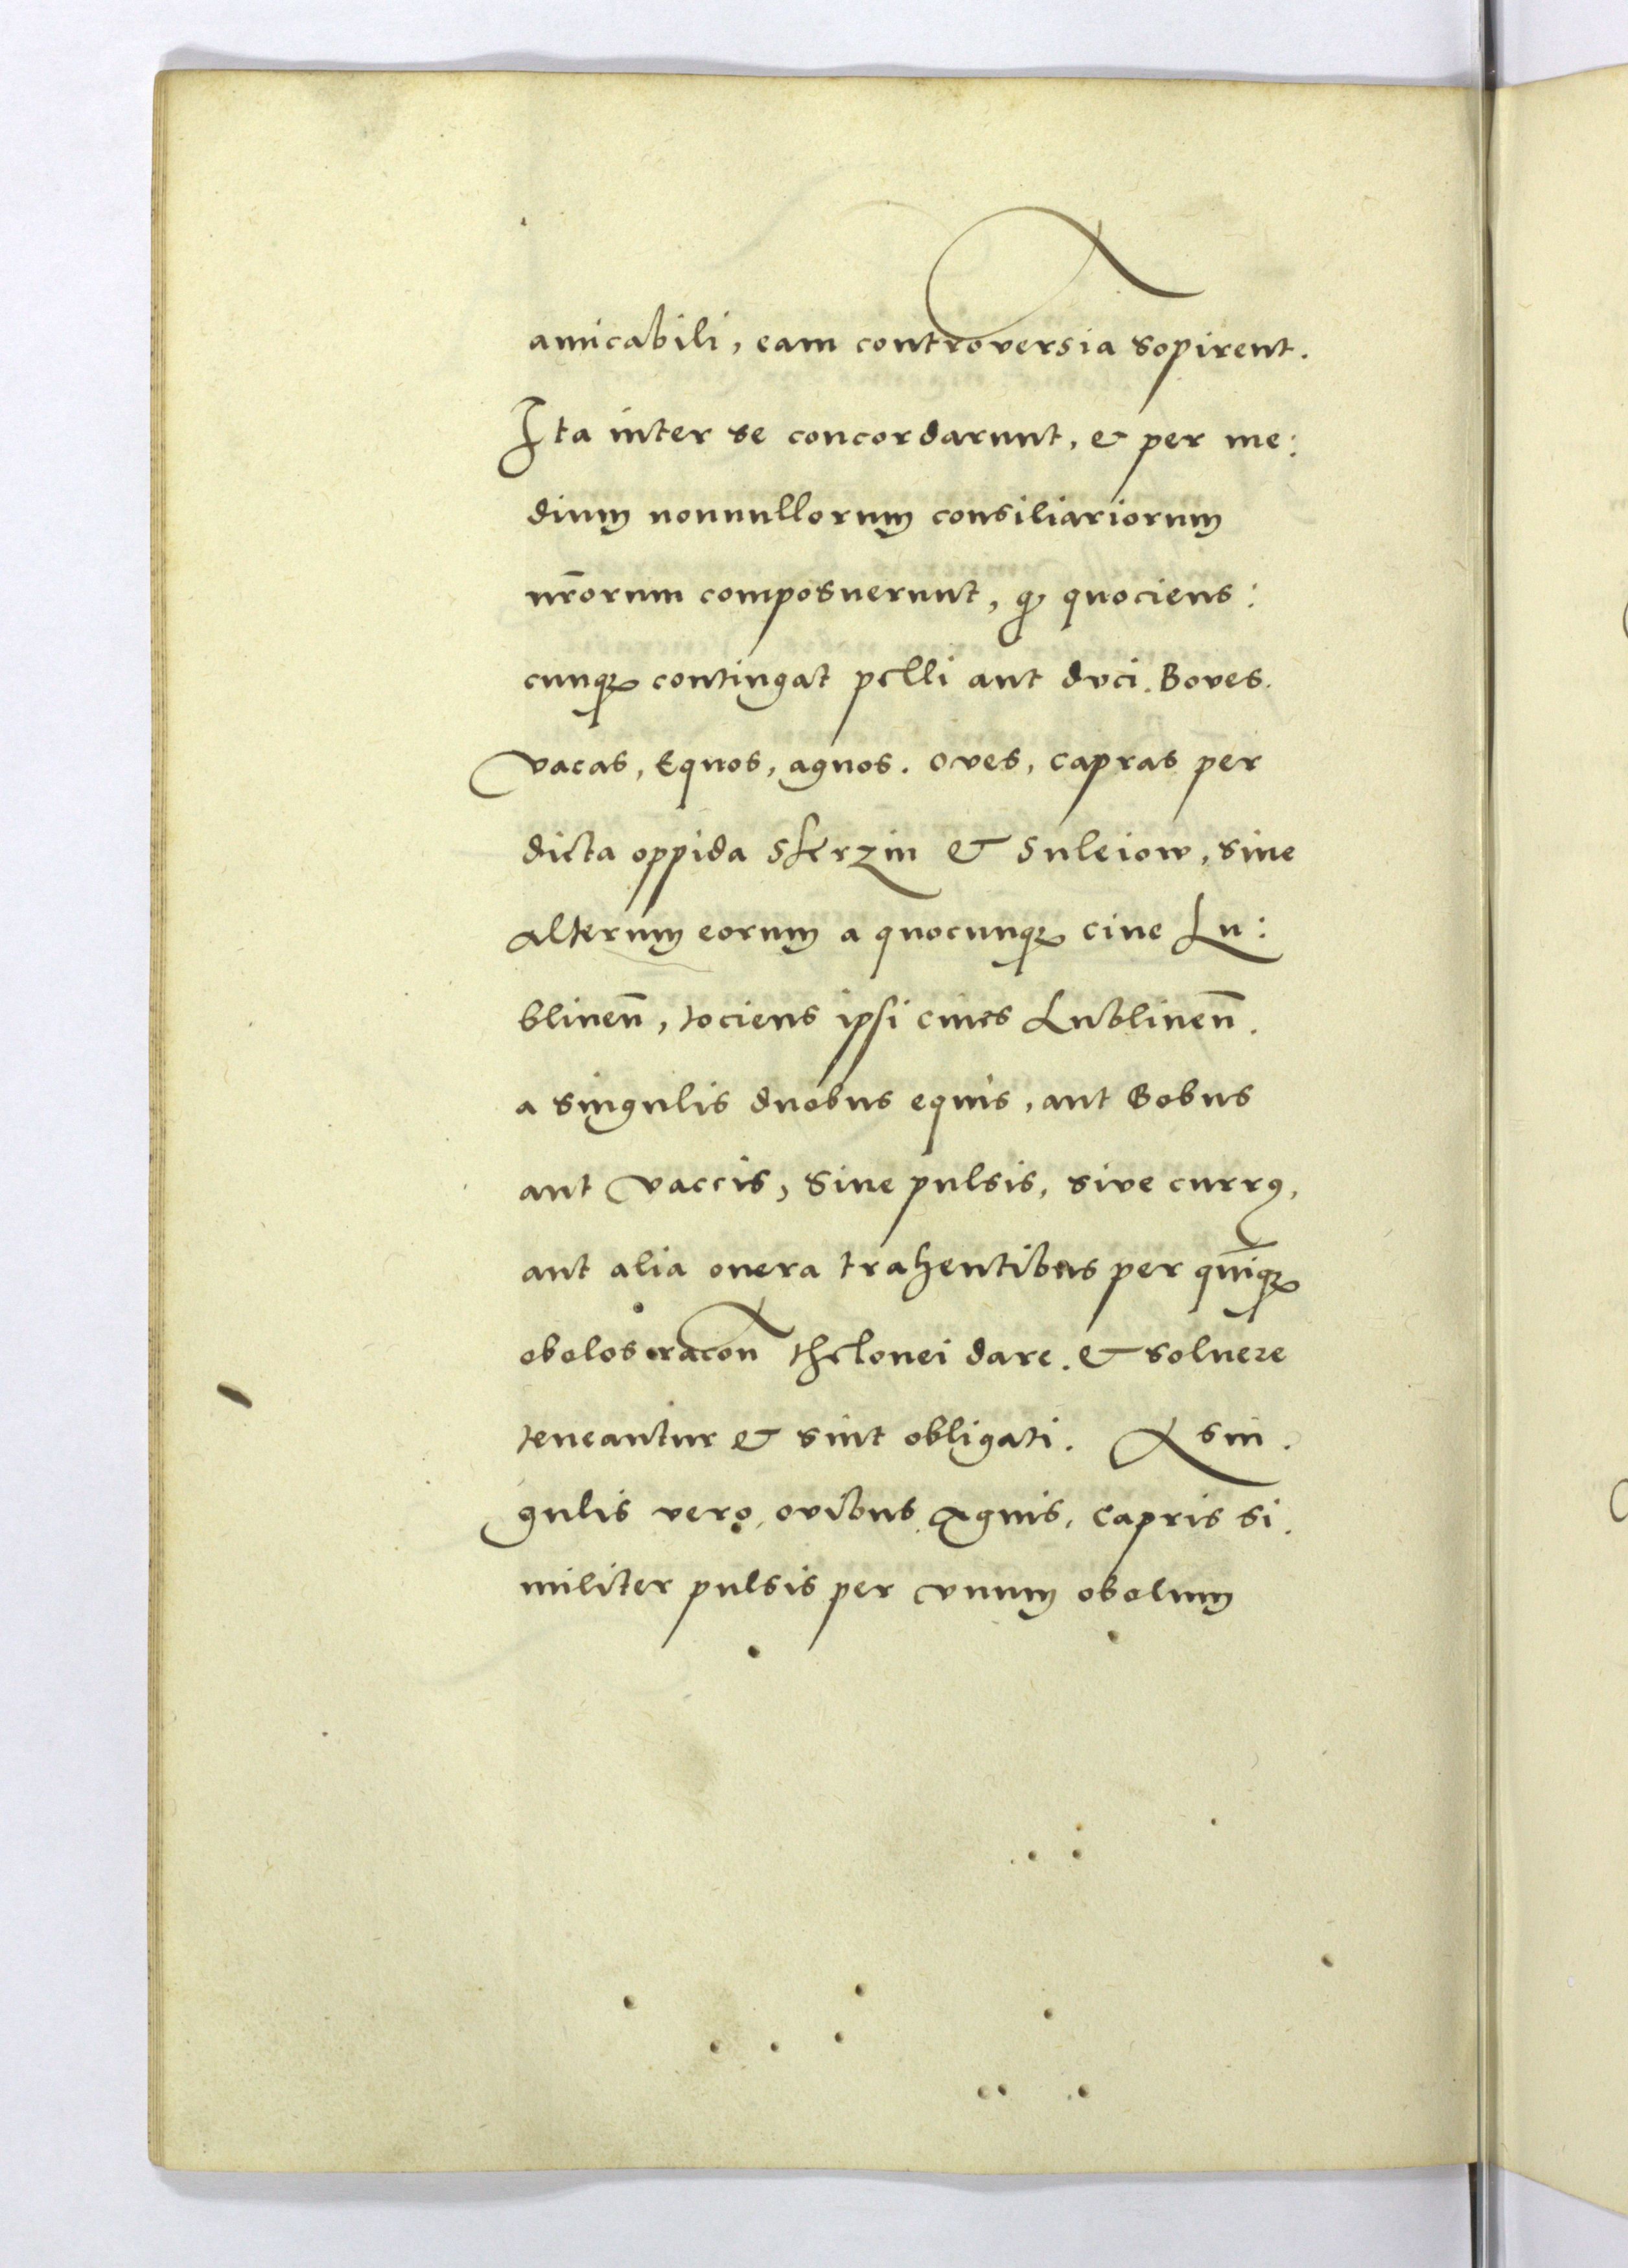 amicabili, eam controversia sopirent.
Ita inter se concordarunt, & per me:
dium nonnullorum consiliariorum
nr̄orum composuerunt, ꝙ quociens:
cunqꝫ contingat pelli aut duci. Boves.
vacas, Equos, agnos. oves, capras per
dicta oppida Skrzin & Suleiow, sine
alterum eorum a quocunqꝫ ciue Lu:
blinen̄, tociens ipsi ciues Lublinen̄.
a singulis duobus equis, aut Bobus
aut vaccis, Siue pulsis, sive currꝰ,
aut alia onera trahentibus per quīqꝫ
obolos racon̄ thelonei dare. & soluere
teneantur & sint obligati. A sin.
gulis vero, ovibus, Agnis, capris si.
militer pulsis per vnum obolum